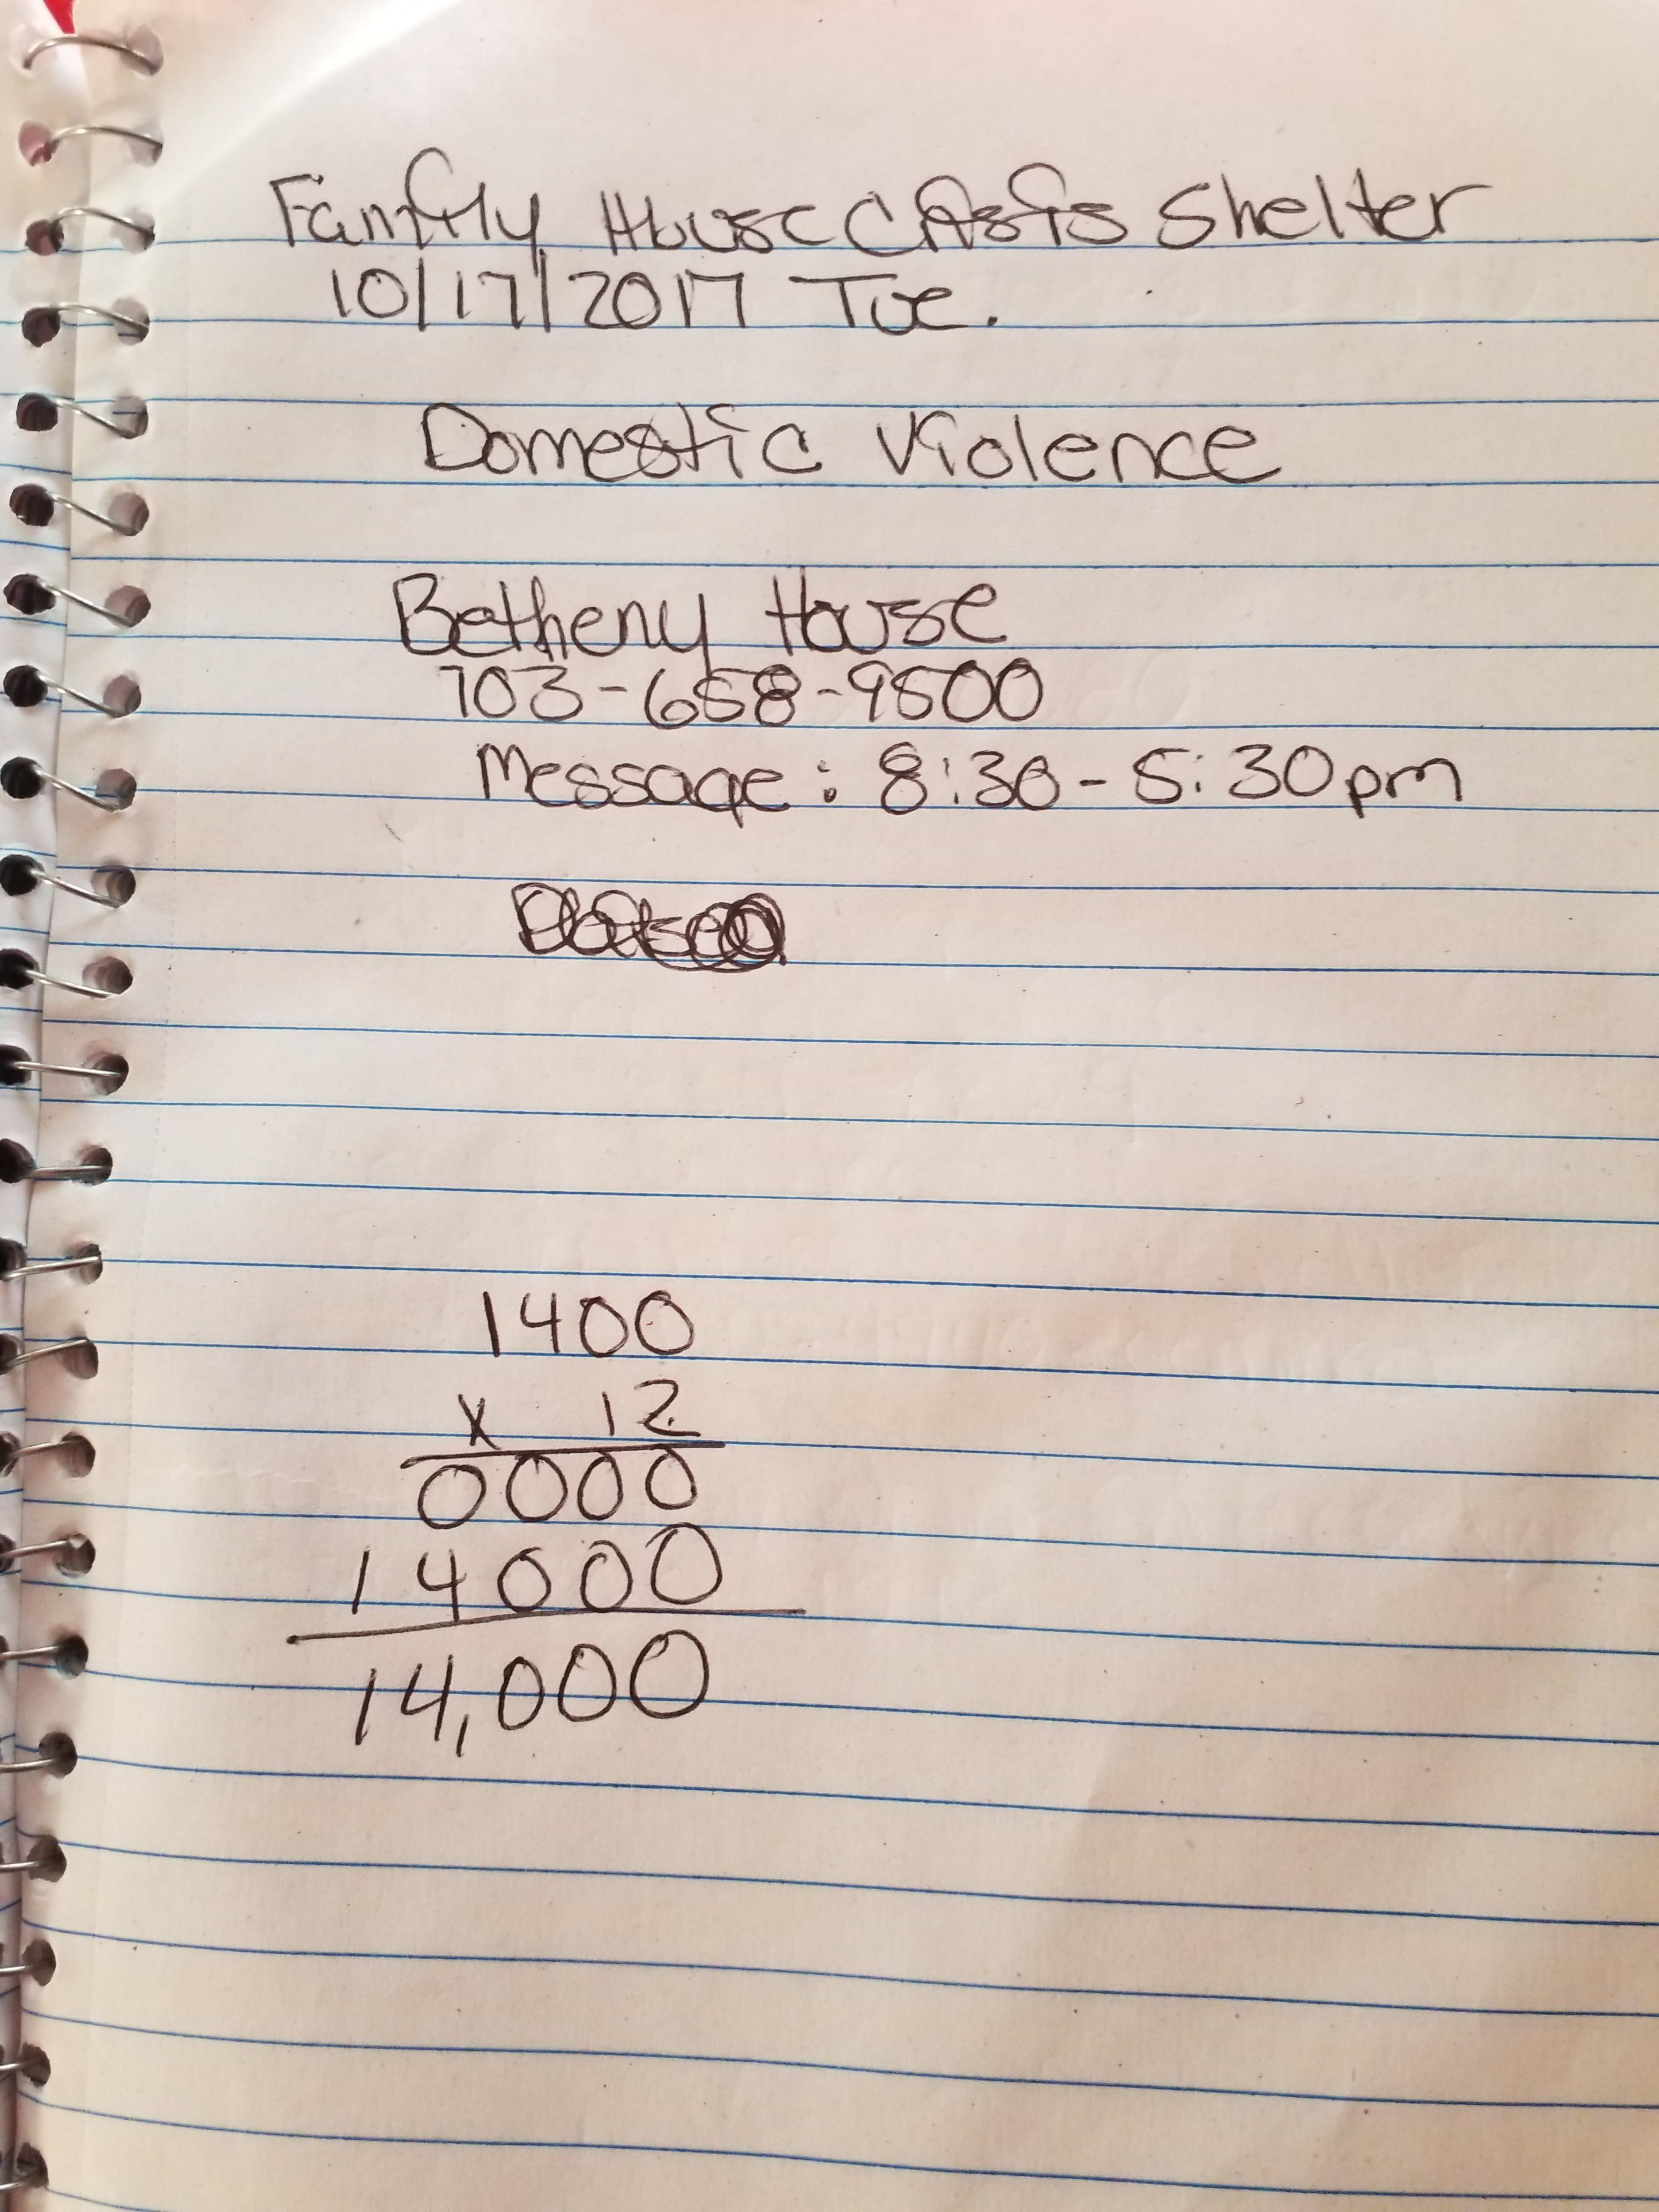 Family House Crisis Shelter
10/17/2017 Tue.
Domestic Violence
Betheny House
703-658-9500
Message: 8:30-5:30pm
1400
x 12
0000
14000
14,000